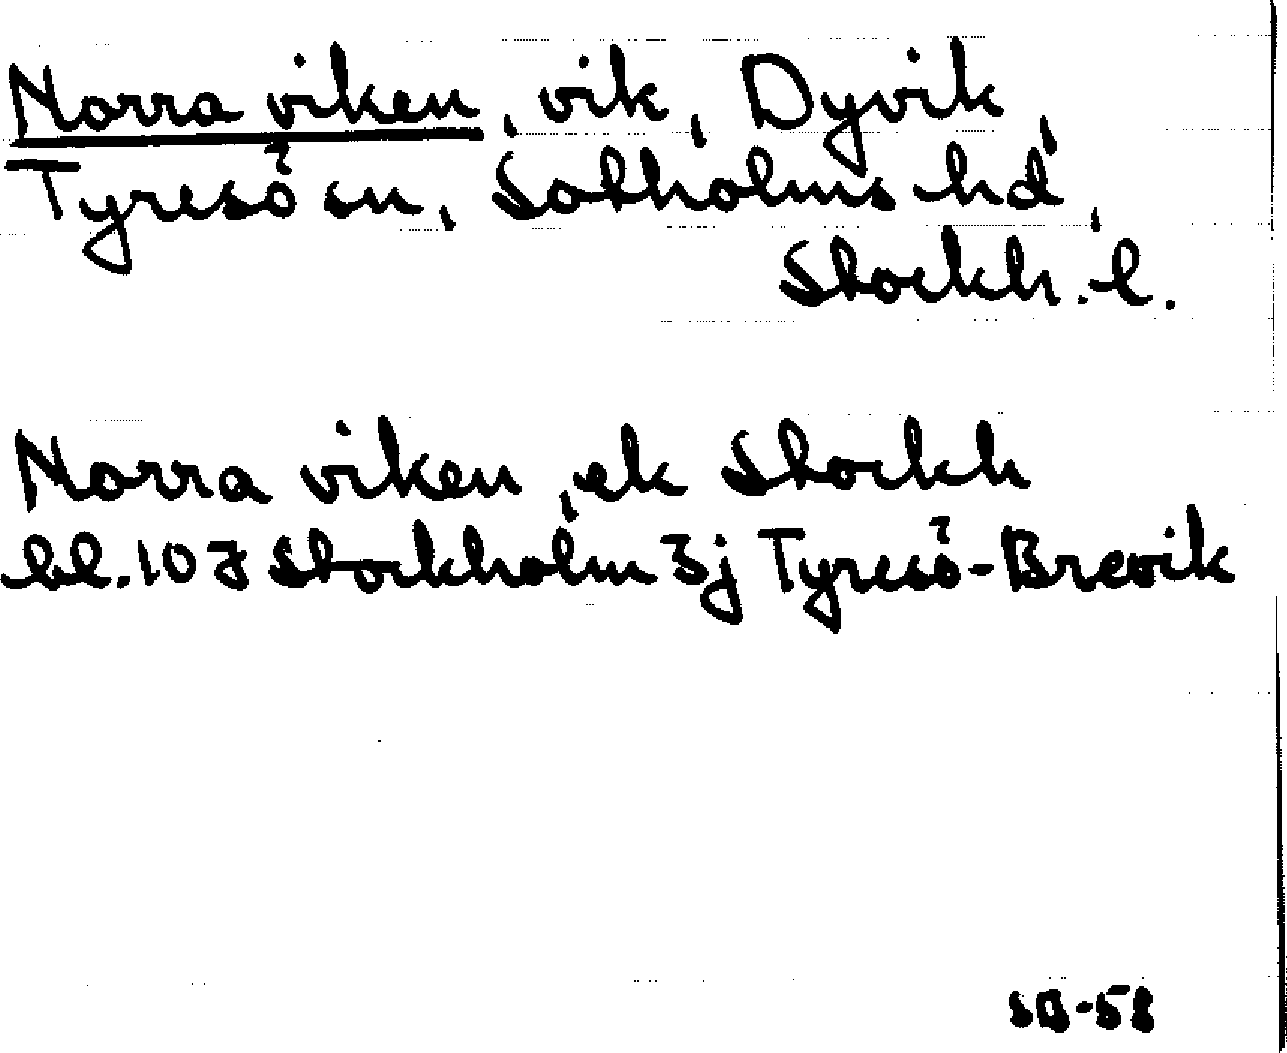 Norra viken, vik, Dyvik,
Tyresö sn, Sotholms hd,
Stockh. l.
Norra viken, ek Stockh
bl. 10 J Stockholm 3j Tyresö-Brevik
SB-58